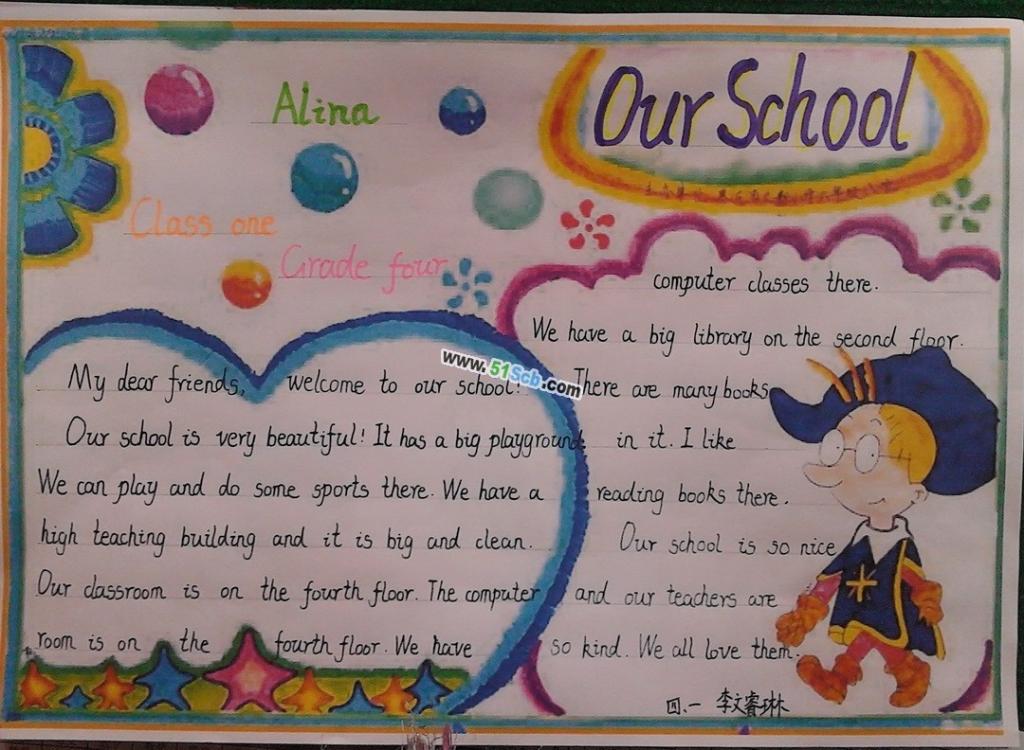 Our School
Alina
Class one
Grade four
My dear friends, welcome to our school!
Our school is very beautiful! It has a big playground
We can play and do some sports there. We have a
high teaching building and it is big and clean.
Our classroom is on the fourth floor. The computer
room is on the fourth floor. We have
computer classes there.
We have a big library on the second floor.
There are many books
in it. I like
reading books there.
Our school is so nice
and our teachers are
so kind. We all love them.
四、一 李文睿琳
www.51Scb.com